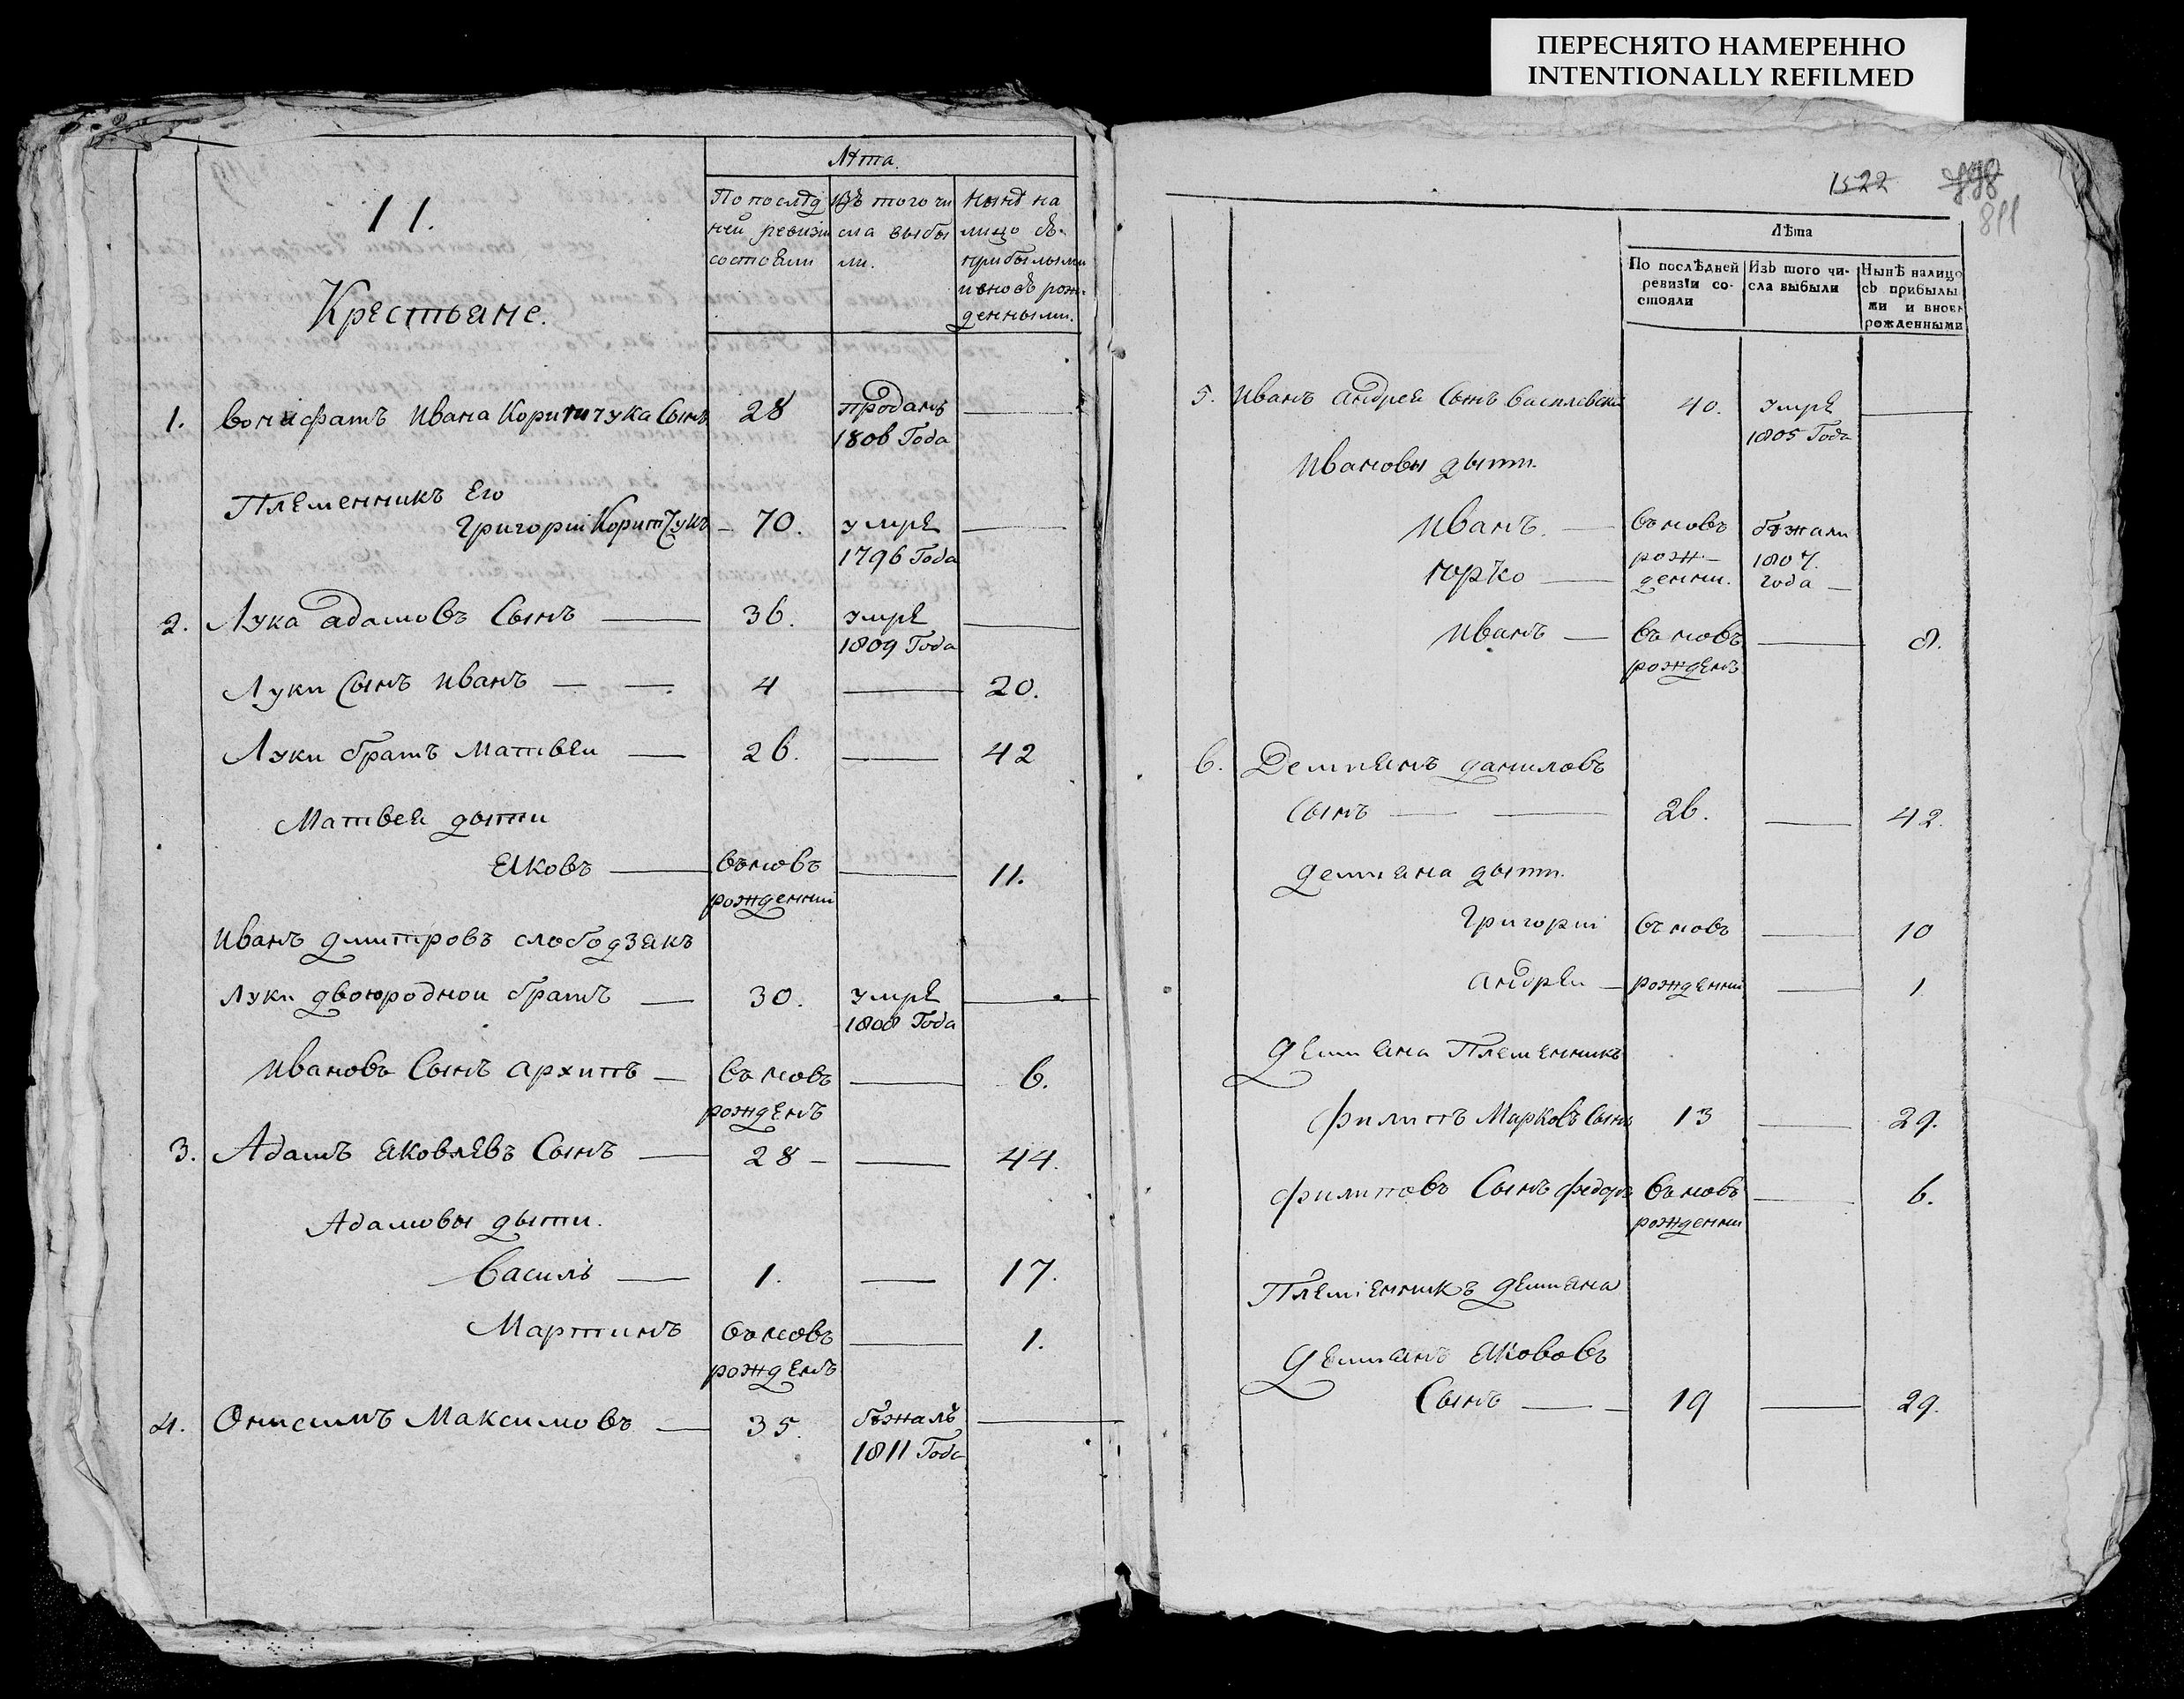 ПЕРЕСНЯТО НАМЕРЕННО
INTENTIONALLY REFILMED
Лѣта.
11.
По послѣд
ней ревизіи
состояли
Изъ того чи
сла выбы
ли.
Нынѣ на
лицо съ
прибылыми
и вновь рож
денными.
Крестьяне.
1. Вонифатъ Ивана Сынъ 28 проданъ —
1806 Года
Племенникъ Его
Григорій — 70. умре —
1796 Года
2. Лука Адамовъ Сынъ — 36. умре —
1809 Года
Луки Сынъ Иванъ — — 4 — 20.
Луки братъ Матвеи — 26. — 42
Матвея дыти
Яковъ — вьновъ — 11.
рожденній
Иванъ Дмитровъ слободзянъ
Луки двоюродной братъ — 30. умре —
1808 Года
Ивановъ Сынъ Архипъ — вьновъ — 6.
рожденъ
3. Адамъ Яковлевъ Сынъ — 28 — — 44.
Адамовы дыти.
Василь — 1. — 17.
Мартинъ вьновъ — 1.
рожденъ
4. Онисимъ Максимовъ — 35. бѣжалъ —
1811 Года
1522
811
Лѣта
По послѣдней
ревизіи со-
стояли
Изъ того чи-
сла выбыли
Нынѣ налицо
съ прибылы
ми и вновь
рожденными
5. Иванъ Андрея Сынъ 40. умре —
1805 Года
Ивановы дыти.
Иванъ. — вьновъ бѣжали
рож- 1807.
Юрко — денни. Года —
Иванъ — вьновъ — 8.
рожденъ
6. Демянъ Даниловъ
Сынъ — — 26. — 42.
Демяна дыти.
Григорій вьновъ — 10
Андреи — рожденни — 1
Демяна Племенникъ
Филипъ Марковъ Сынъ 13 — 29.
Филиповъ Сынъ Федоръ вьновъ — 6.
рожденни
Племенникъ Демяна
Демянъ Якововъ
Сынъ — — 19 — 29.